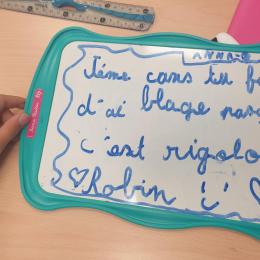 ANNA
J'éme cans tu f
d'ai blage pas
c'est rigolo
Robin